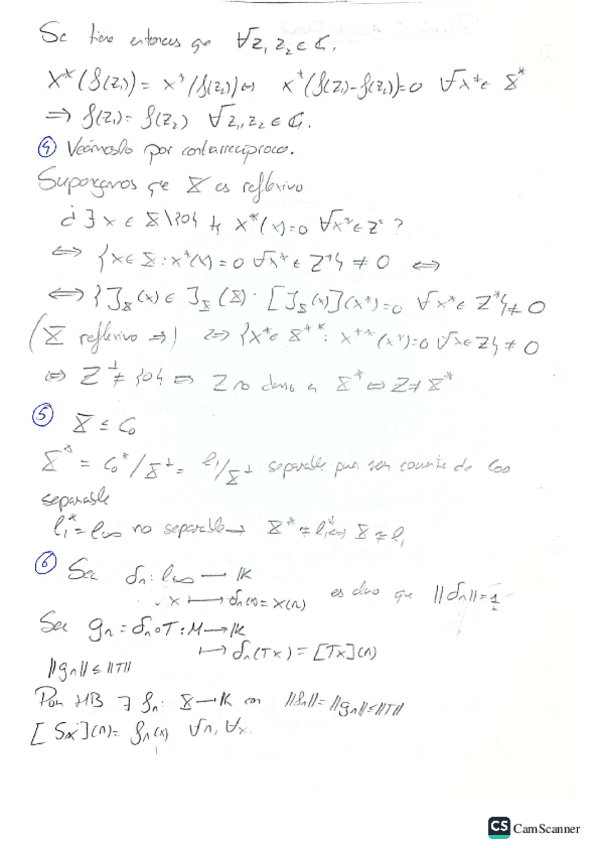 Se tiene entonces que ∀z₁, z₂ ∈ ℂ,
X*(f(z₁)) = x*(f(z₂)) ⇔ x*(f(z₁)-f(z₂))=0 ∀x* ∈ X*
⇒ f(z₁) = f(z₂) ∀z₁, z₂ ∈ ℂ.
④ Veámoslo por contrarrecíproco.
Supongamos que X es reflexivo
¿∃ x ∈ X\{0} tq x*(x)=0 ∀x* ∈ Z ?
⇔ {x ∈ X : x*(x) = 0 ∀x* ∈ Z} ≠ 0 ⇔
⇔ {J_X(x) ∈ J_X(X) : [J_X(x)](x*)=0 ∀x* ∈ Z} ≠ 0
(X reflexivo ⇒) ⇔ {x** ∈ X** : x**(x*)=0 ∀x ∈ Z} ≠ 0
⇔ Z⊥ ≠ {0} ⇔ Z no denso en X* ⇔ Z ≠ X*
⑤ X ≤ c₀
X* = c₀*/X⊥ = l₁/X⊥ separable por ser cociente de
separable
l₁* = l∞ no separable → X* ≠ l₁* ⇔ X ≠ l₁
⑥ Sea δn : l∞ → K
x ↦ δn(x) = x(n) es claro que ||δn|| = 1
Sea gn = δn∘T : M → K
↦ δn(Tx) = [Tx](n)
||gn|| ≤ ||T||
Por HB ∃ fn : X → K con ||fn|| = ||gn|| ≤ ||T||
[Sx](n) = fn(x) ∀n, ∀x.
CS CamScanner